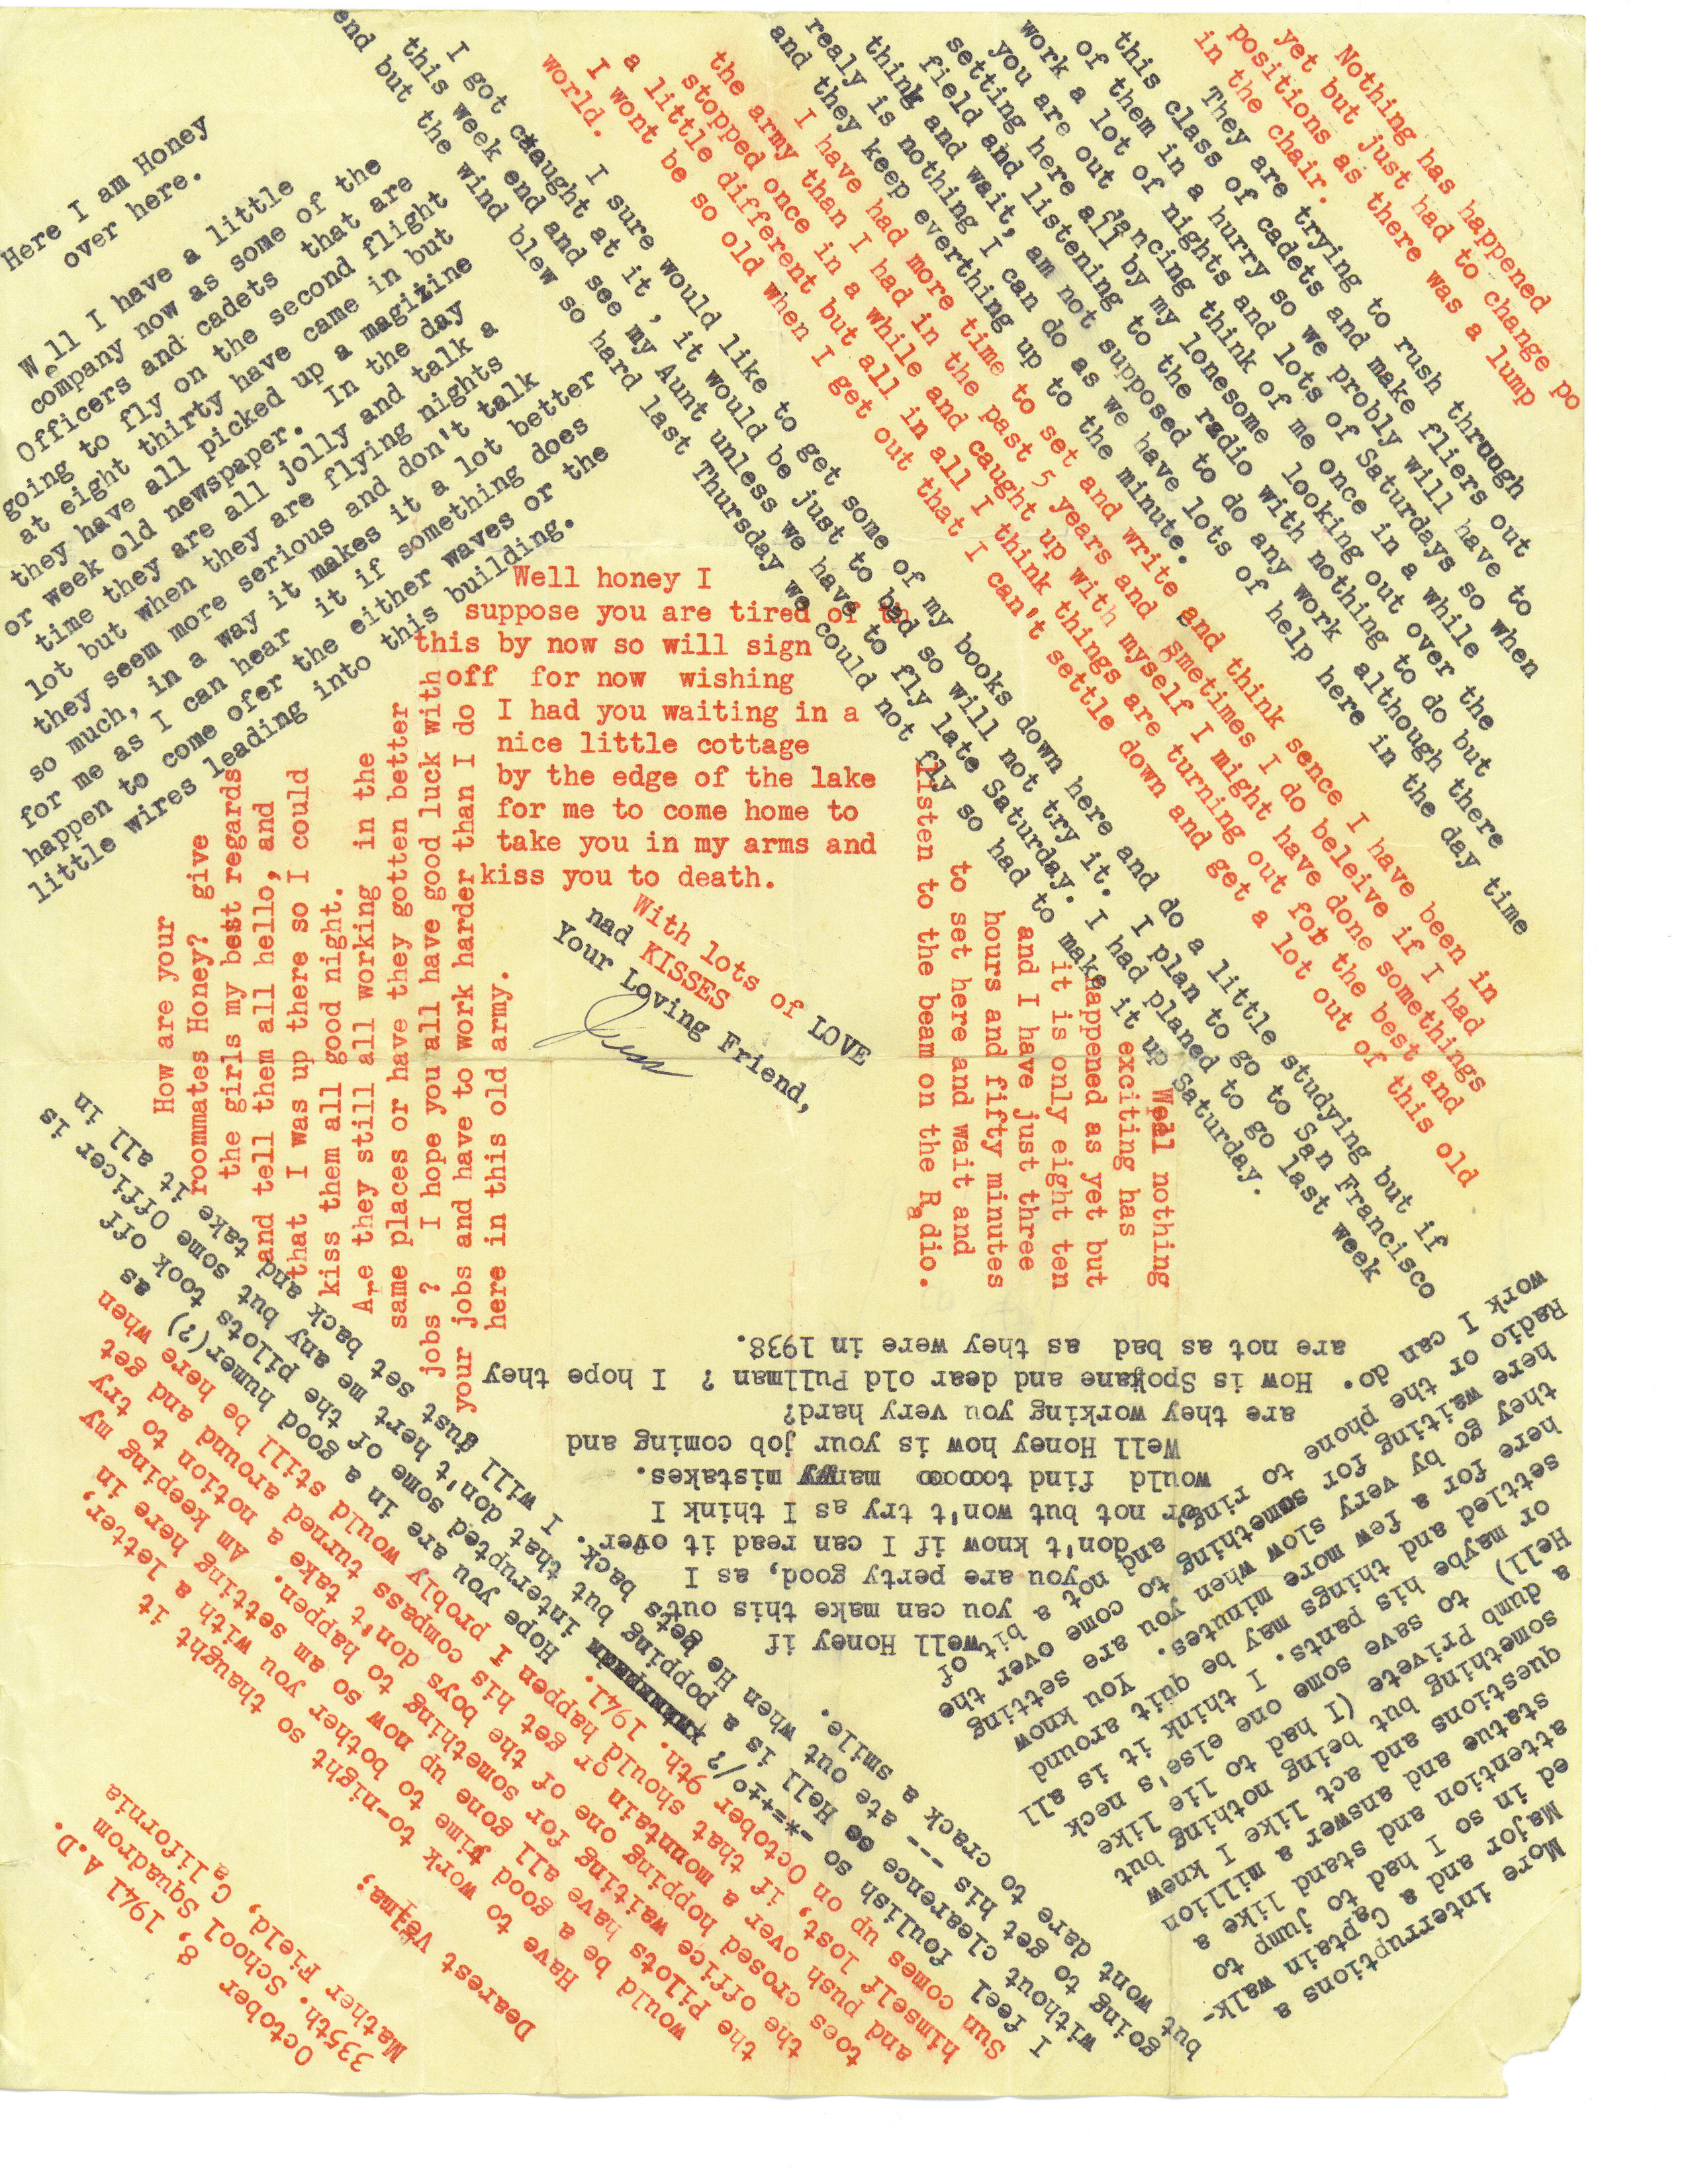 October 8, 1941 A.D.
335th. School Squadrom
Mather Field, California
Dearest Velma;
Have to work to-night so thaught it
would be a good time to bother you with a letter,
the Pilots have all gone up now so am setting here in
the office waiting for something to happen. Am keeping my
toes crosed hopping one of the boys don't take a notion to try
and push over a mountain or get his compass turned around and get
himself lost, if that should happen I probly would still be here when
Sun comes up on October 9th. 1941.
Hope you are in a good humer(?) as
I feel foulish so -*=+±°/? interupted some of the pilots took off
without clearence so Hell is a popping but that don't hert me any but some Officer is
going to get his --- ate out when He gets back. I will gust set back and take it all in
but wont dare to crack a smile.
More interruptions a
Major and a Captain walk-
ed in so I had to jump to
attention and stand like a
statue and answer a million
questions and act like I knew
something but being nothing but
a dumb Privete (I had to lie like
Hell) to save some one else's neck
or maybe his pants. I think it is all
settled and things may be quit around
here for a few more minutes. You know
they go by very slow when you are setting
here waiting for something to come over the
Radio or the phone to ring, and not a bit of
work I can do.
Well Honey if
you can make this out
you are perty good, as I
don't know if I can read it over
or not but won't try as I think I
would find toooooo many mistakes.
Well Honey how is your job coming and
are they working you very hard?
How is Spokane and dear old Pullman ? I hope they
are not as bad as they were in 1938.
Weel nothing
exciting has
happened as yet but
it is only eight ten
and I have just three
hours and fifty minutes
to set here and wait and
listen to the beam on the Radio.
Nothing has happened
yet but just had to change po
positions as there was a lump
in the chair.
They are trying to rush through
this class of cadets and make fliers out
of them in a hurry so we probly will have to
work a lot of nights and lots of Saturdays so when
you are out dancing think of me once in a while
setting here all by my lonesome looking out over the
field and listening to the radio with nothing to do but
think and wait, am not supposed to do any work although there
realy is nothing I can do as we have lots of help here in the day time
and they keep everthing up to the minute.
I have had more time to set and write and think sence I have been in
the army than I had in the past 5 years and smetimes I do beleive if I had
stopped once in a while and caught up with myself I might have done somethings
a little different but all in all I think things are turning out for the best and
I wont be so old when I get out that I can't settle down and get a lot out of this old
world.
I sure would like to get some of my books down here and do a little studying but if
I got caught at it, it would be just to bad so will not try it. I plan to go to San Francisco
this week end and see my Aunt unless we have to fly late Saturday. I had planed to go last week
end but the wind blew so hard last Thursday we could not fly so had to make it up Saturday.
Here I am Honey
over here.
Well I have a little
company now as some of the
Officers and cadets that are
going to fly on the second flight
at eight thirty have came in but
they have all picked up a magizine
or week old newspaper. In the day
time they are all jolly and talk a
lot but when they are flying nights
they seem more serious and don't talk
so much, in a way it makes it a lot better
for me as I can hear it if something does
happen to come ofer the either waves or the
little wires leading into this building.
How are your
roommates Honey? give
the girls my best regards
and tell them all hello, and
that I was up there so I could
kiss them all good night.
Are they still all working in the
same places or have they gotten better
jobs ? I hope you all have good luck with
your jobs and have to work harder than I do
here in this old army.
Well honey I
suppose you are tired of t
this by now so will sign
off for now wishing
I had you waiting in a
nice little cottage
by the edge of the lake
for me to come home to
take you in my arms and
kiss you to death.
With lots of LOVE
nad KISSES
Your Loving Friend,
Jess